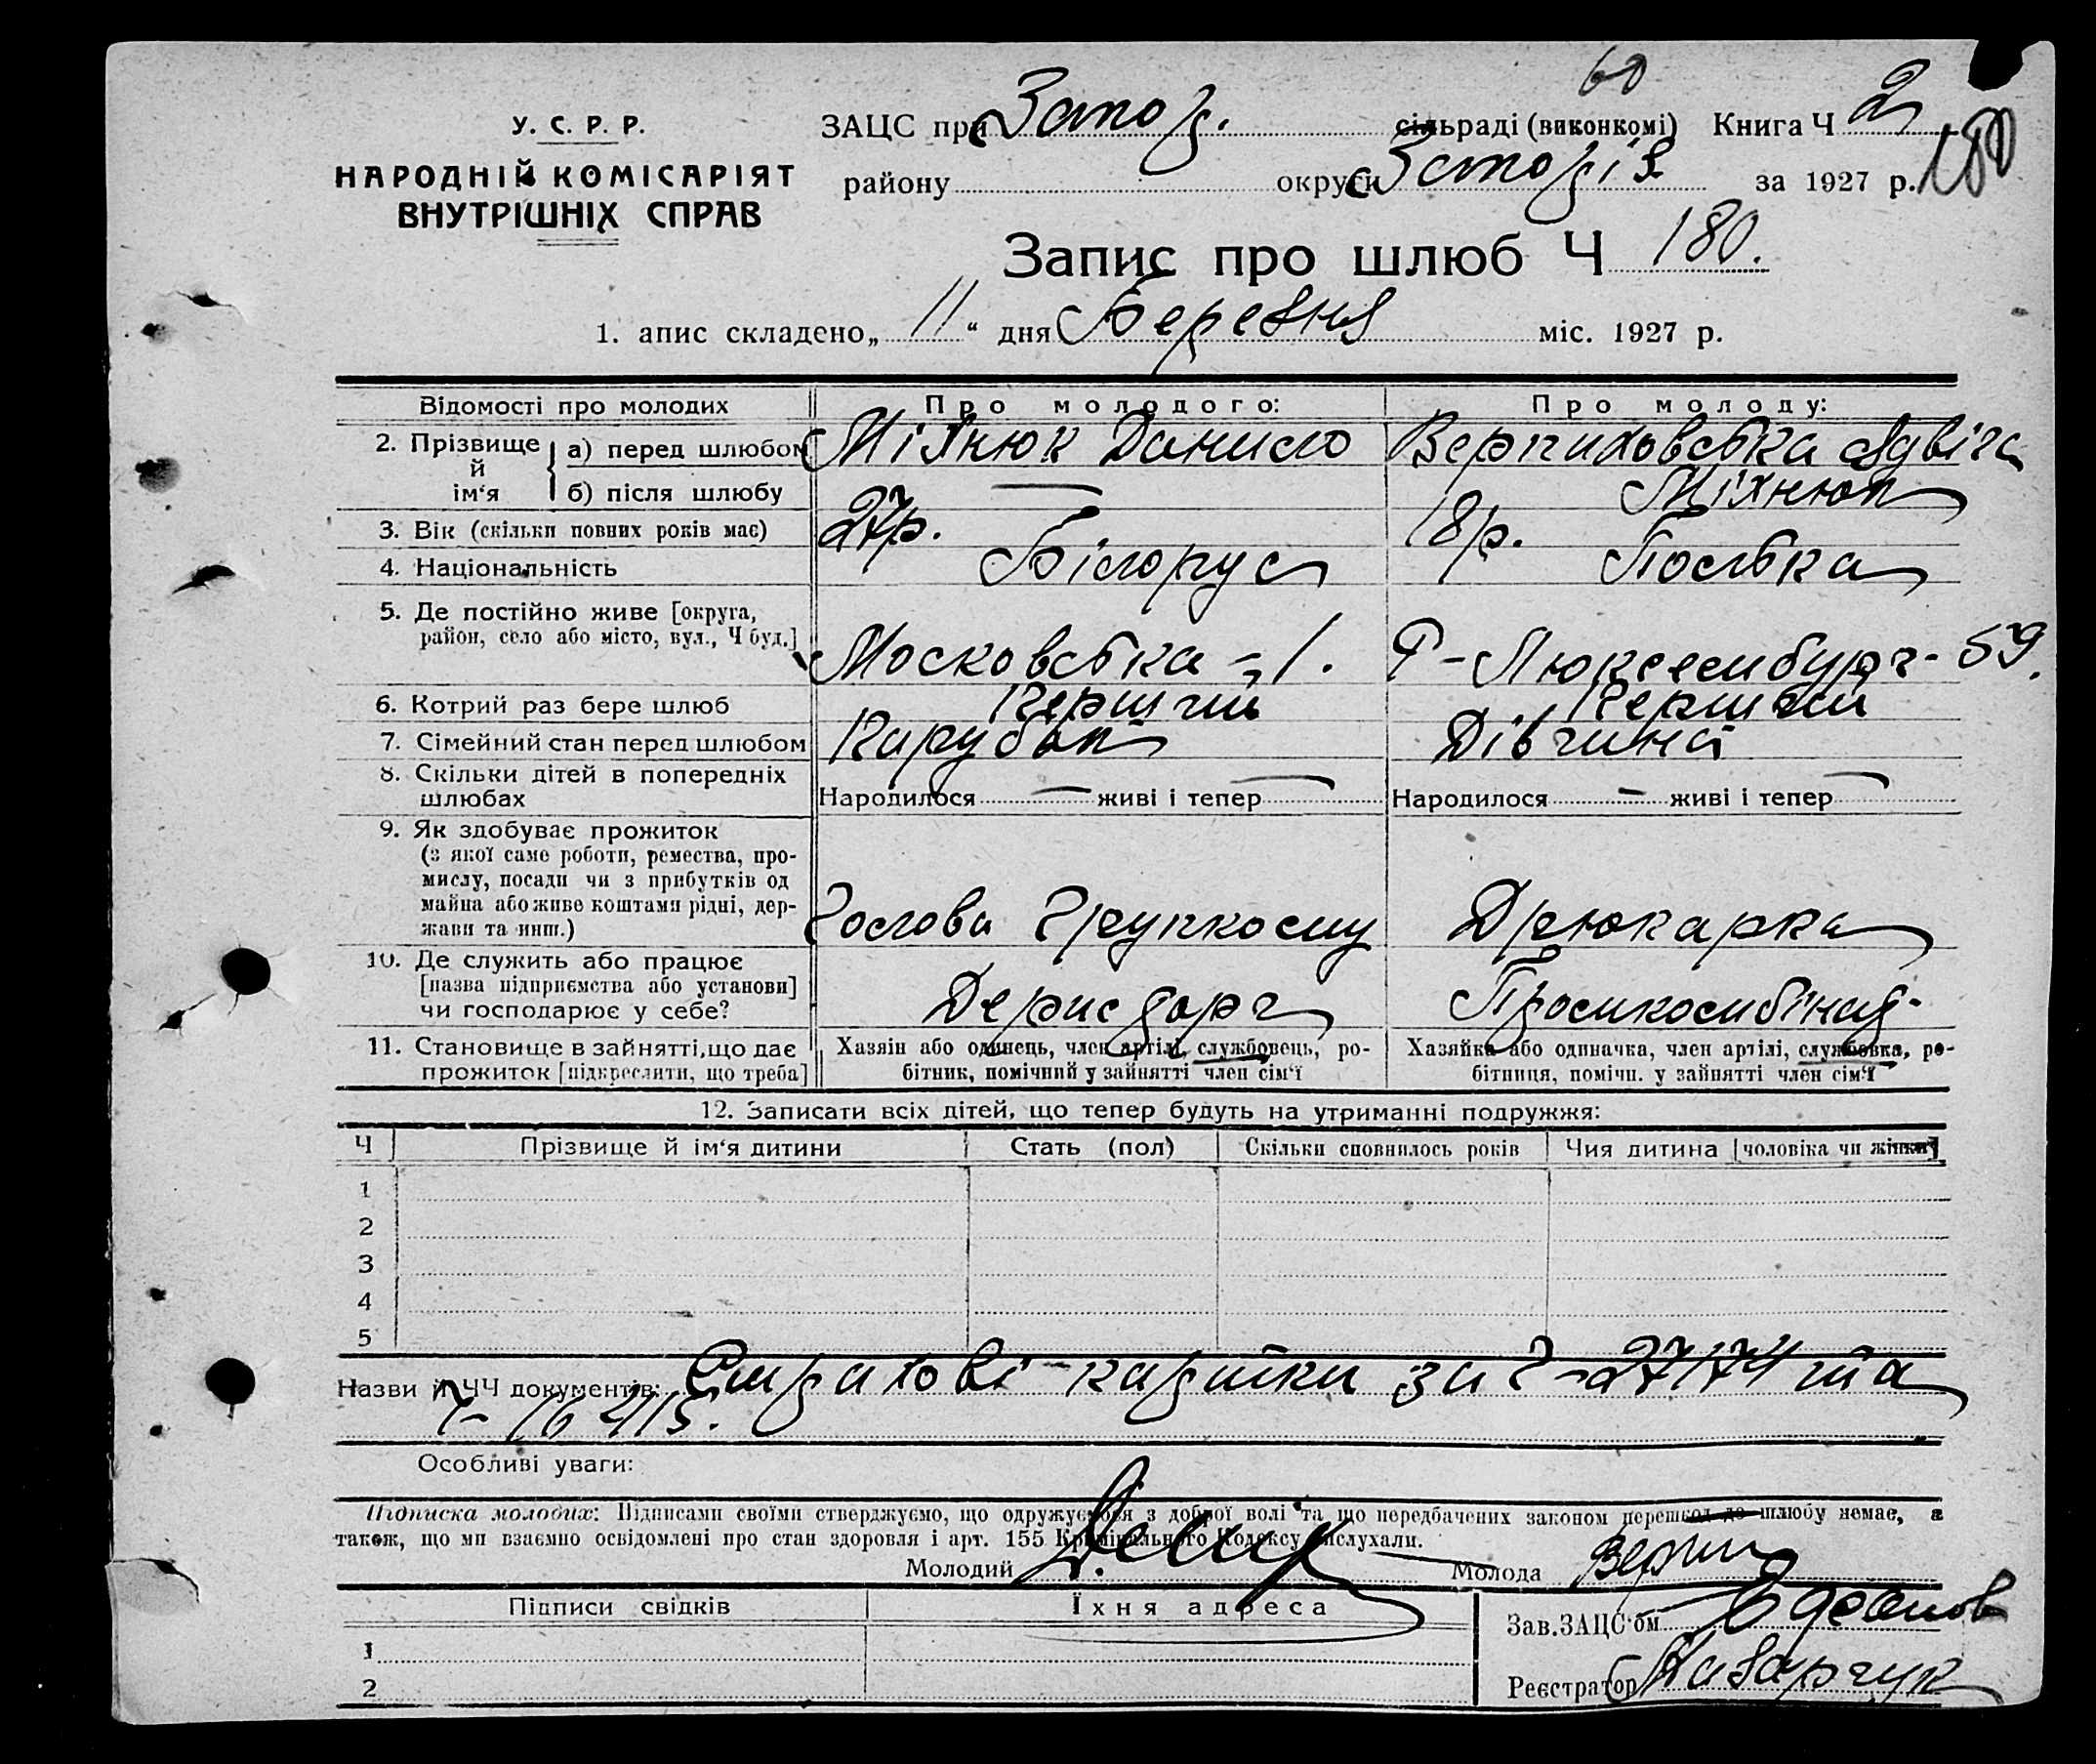 60
У. С. Р. Р.
НАРОДНІЙ КОМІСАРІЯТ
ВНУТРІШНІХ СПРАВ
ЗАЦС при Запор. сільраді (виконкомі) Книга Ч 2
району округи за 1927 р. 180
Запис про шлюб Ч 180.
1. апис складено „ 11 “ дня Березня міс. 1927 р.
Відомості про молодих Про молодого: Про молоду:
2. Прізвище й ім‘я а) перед шлюбом Міхнюк Данило Ядвіга
б) після шлюбу — Міхнюк
3. Вік (скільки повних років має) 27р. 18р.
4. Національність Білорус Полька
5. Де постійно живе [округа,
район, село або місто, вул., Ч буд.] Московська - 1. Р-Люксембург- 59.
6. Котрий раз бере шлюб Перший Перший
7. Сімейний стан перед шлюбом Парубок Дівчина
8. Скільки дітей в попередніх
шлюбах Народилося — живі і тепер — Народилося — живі і тепер —
9. Як здобуває прожиток
(з якої саме роботи, ремества, про-
мислу, посади чи з прибутків од
майна або живе коштами рідні, дер-
жави та инш.) Голова Групкому Дрюкарка
10. Де служить або працює
[назва підприємства або установи]
чи господарює у себе?
11. Становище в зайнятті, що дає
прожиток [підкреслити, що треба]
Хазяін або одинець, член артілі, службовець, ро-
бітник, помічний у зайнятті член сім‘ї
Хазяйка або одиначка, член артілі, службовка, ро-
бітниця, помічн. у зайнятті член сім‘ї
12. Записати всіх дітей, що тепер будуть на утриманні подружжя:
Ч Прізвище й ім‘я дитини Стать (пол) Скільки сповнилось років Чия дитина [чоловіка чи жінки]
1
2
3
4
5
Назви й ЧЧ документів: Страхові картки за Ч-27174 та
Ч-
Особливі уваги:
Підписка молодих: Підписами своїми стверджуємо, що одружуємося з доброї волі та що передбачених законом перешкод до шлюбу немає, а
також, що ми взаємно освідомлені про стан здоровля і арт. 155 Кримінального Кодексу вислухали.
Молодий Молода
Підписи свідків Їхня адреса
Зав. ЗАЦС‘ом
1
2
Реєстратор